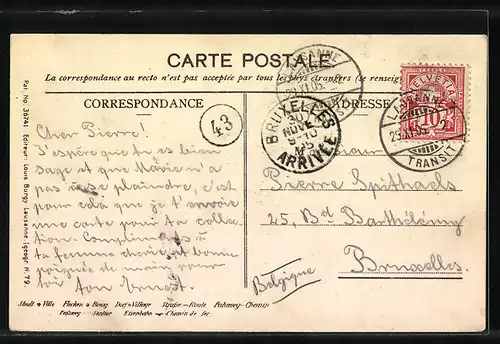 CARTE POSTALE
La correspondance au recto n'est pas acceptée par tous les pays étrangers (se renseig
CORRESPONDANCE
ADRESSE
LAUSANNE
29.XI.05.
BRUXELLES
30
NOVE
9-10
ARRIVÉE
HELVETIA
10
LAUSANNE
29.XI.05.
TRANSIT
43
Cher Pierre!
J'espère que tu es bien
sage et que Marie n'a
pas à se plaindre, c'est
pour cela que je t'envoie
une carte pour ta collec
tion. Compliments à
ta femme chérie et bonne
poignée de main pour
toi
ton Ernest.
Pierre Spitthaels
25, Bd Barthélémy
Bruxelles.
Belgique
Pat. No. 36741 Editeur: Louis Burgy, Lausanne (géogr. N. 79.
Stadt Ville Flecken Bourg Dorf Village Strasse Route Fahrweg Chemin
Fussweg Sentier Eisenbahn Chemin de fer